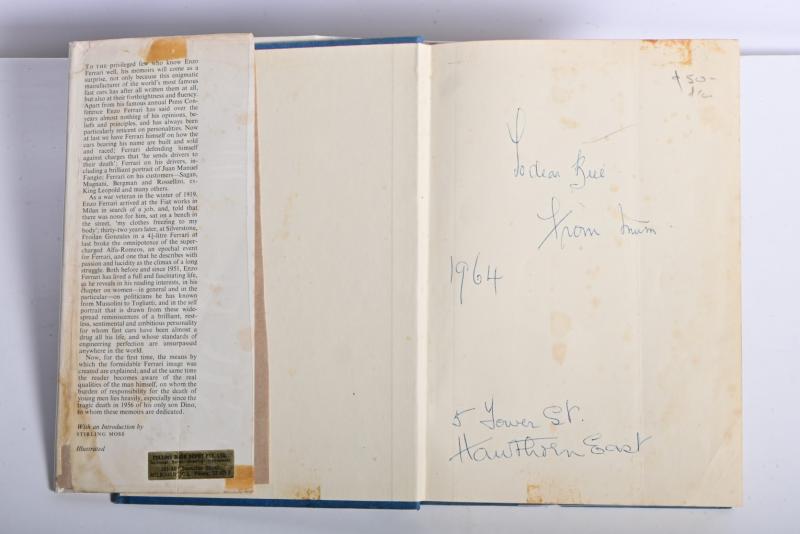 TO THE privileged few who know Enzo
Ferrari well, his memoirs will come as a
surprise, not only because this enigmatic
manufacturer of the world's most famous
fast cars has after all written them at all,
but also at their forthrightness and fluency.
Apart from his famous annual Press Con-
ference Enzo Ferrari has said over the
years almost nothing of his opinions, be-
liefs and principles, and has always been
particularly reticent on personalities. Now
at last we have Ferrari himself on how the
cars bearing his name are built and sold
and raced; Ferrari defending himself
against charges that 'he sends drivers to
their death'; Ferrari on his drivers, in-
cluding a brilliant portrait of Juan Manuel
Fangio; Ferrari on his customers—Sagan,
Magnani, Bergman and Rossellini, ex-
King Leopold and many others.
As a war veteran in the winter of 1919,
Enzo Ferrari arrived at the Fiat works in
Milan in search of a job, and, told that
there was none for him, sat on a bench in
the street, 'my clothes freezing to my
body'; thirty-two years later, at Silverstone,
Froilan Gonzales in a 4½-litre Ferrari at
last broke the omnipotence of the super-
charged Alfa-Romeos, an epochal event
for Ferrari, and one that he describes with
passion and lucidity as the climax of a long
struggle. Both before and since 1951, Enzo
Ferrari has lived a full and fascinating life,
as he reveals in his reading interests, in his
chapter on women—in general and in the
particular—on politicians he has known
from Mussolini to Togliatti, and in the self
portrait that is drawn from these wide-
spread reminiscences of a brilliant, rest-
less, sentimental and ambitious personality
for whom fast cars have been almost a
drug all his life, and whose standards of
engineering perfection are unsurpassed
anywhere in the world.
Now, for the first time, the means by
which the formidable Ferrari image was
created are explained; and at the same time
the reader becomes aware of the real
qualities of the man himself, on whom the
burden of responsibility for the death of
young men lies heavily, especially since the
tragic death in 1956 of his only son Dino,
to whom these memoirs are dedicated.
With an Introduction by
STIRLING MOSS
Illustrated
COLLINS BOOK DEPOT PTY. LTD.
$50-
To dear
from Mum
1964
5 Tower St.
Hawthorn East